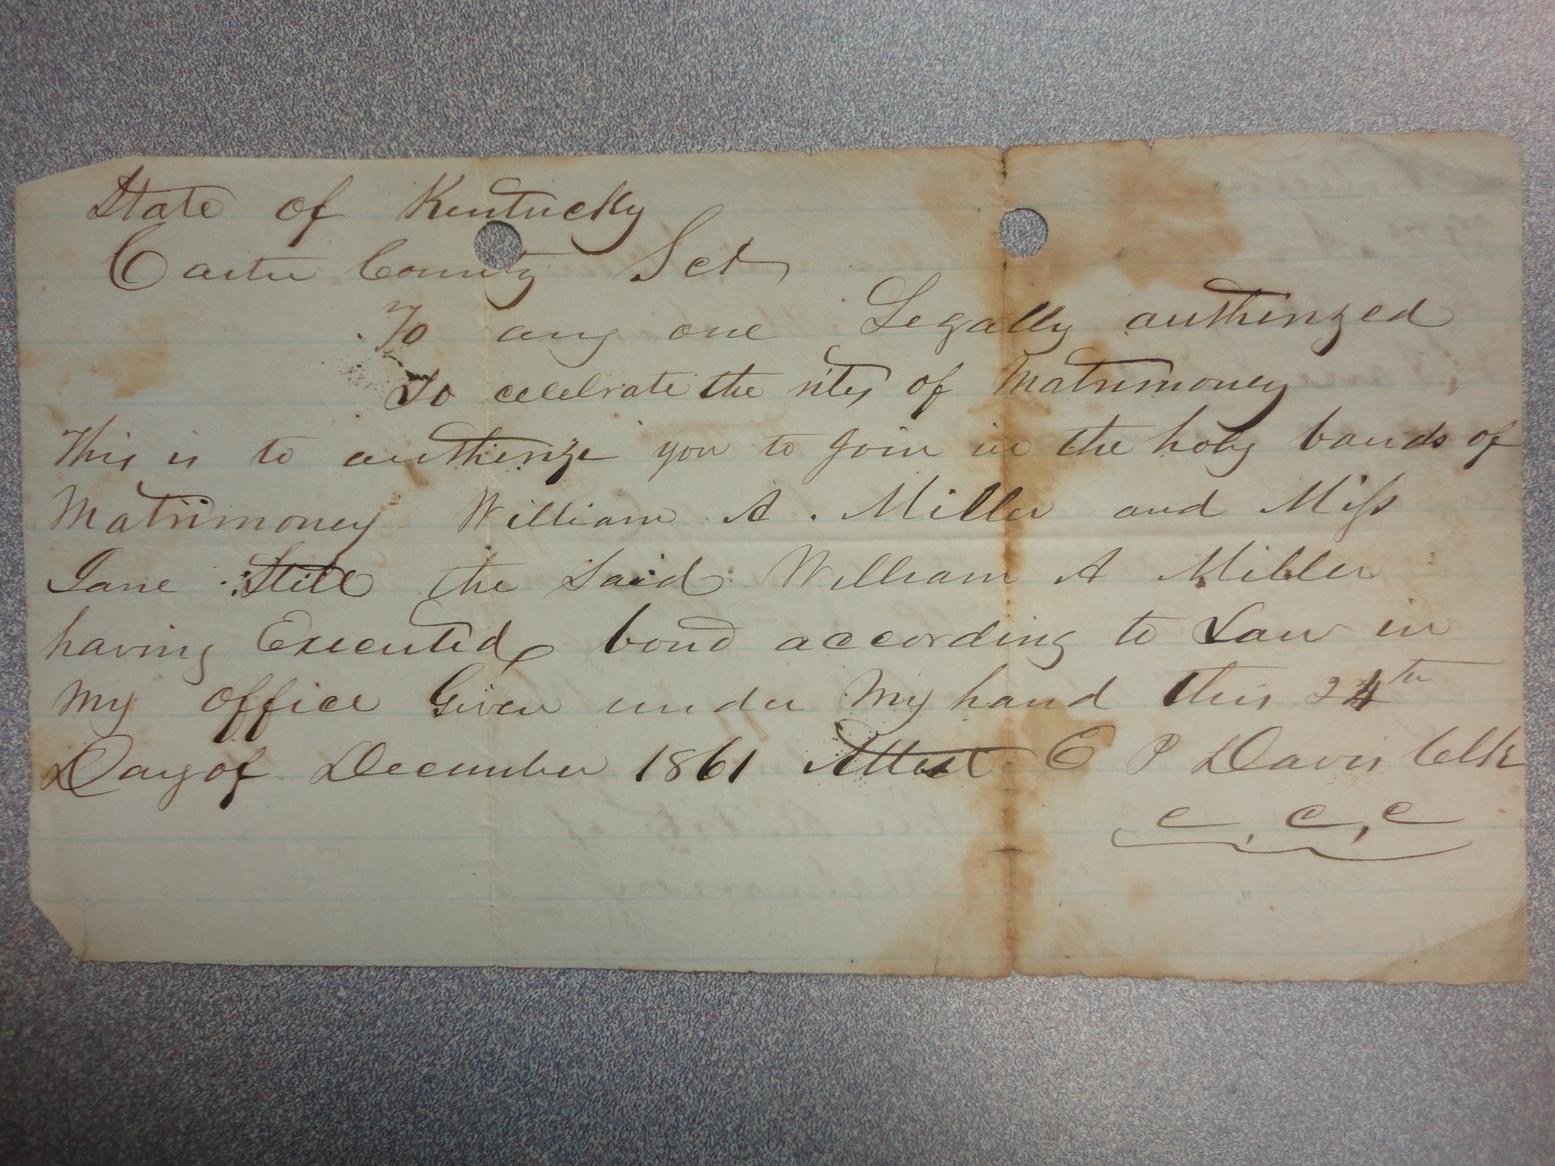 State of Kentucky
Carter County Sct
To any one Legally authorized
To celebrate the rites of Matrimoney
This is to authorize you to Join in the holy bands of
Matrimoney William A. Miller and Miss
Jane Still the Said William A Miller
having Executed bond according to Law in
My office Given under My hand this 24th
Day of December 1861 Attest E P Davis Clk
C, C, C